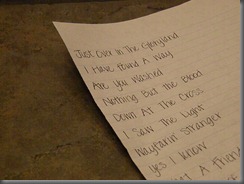 Just Over In The Gloryland
I Have Found A Way
Are You Washed
Nothing But the Blood
Down At The Cross
I Saw The Light
Wayfarin' Stranger
Yes I Know
A Friend